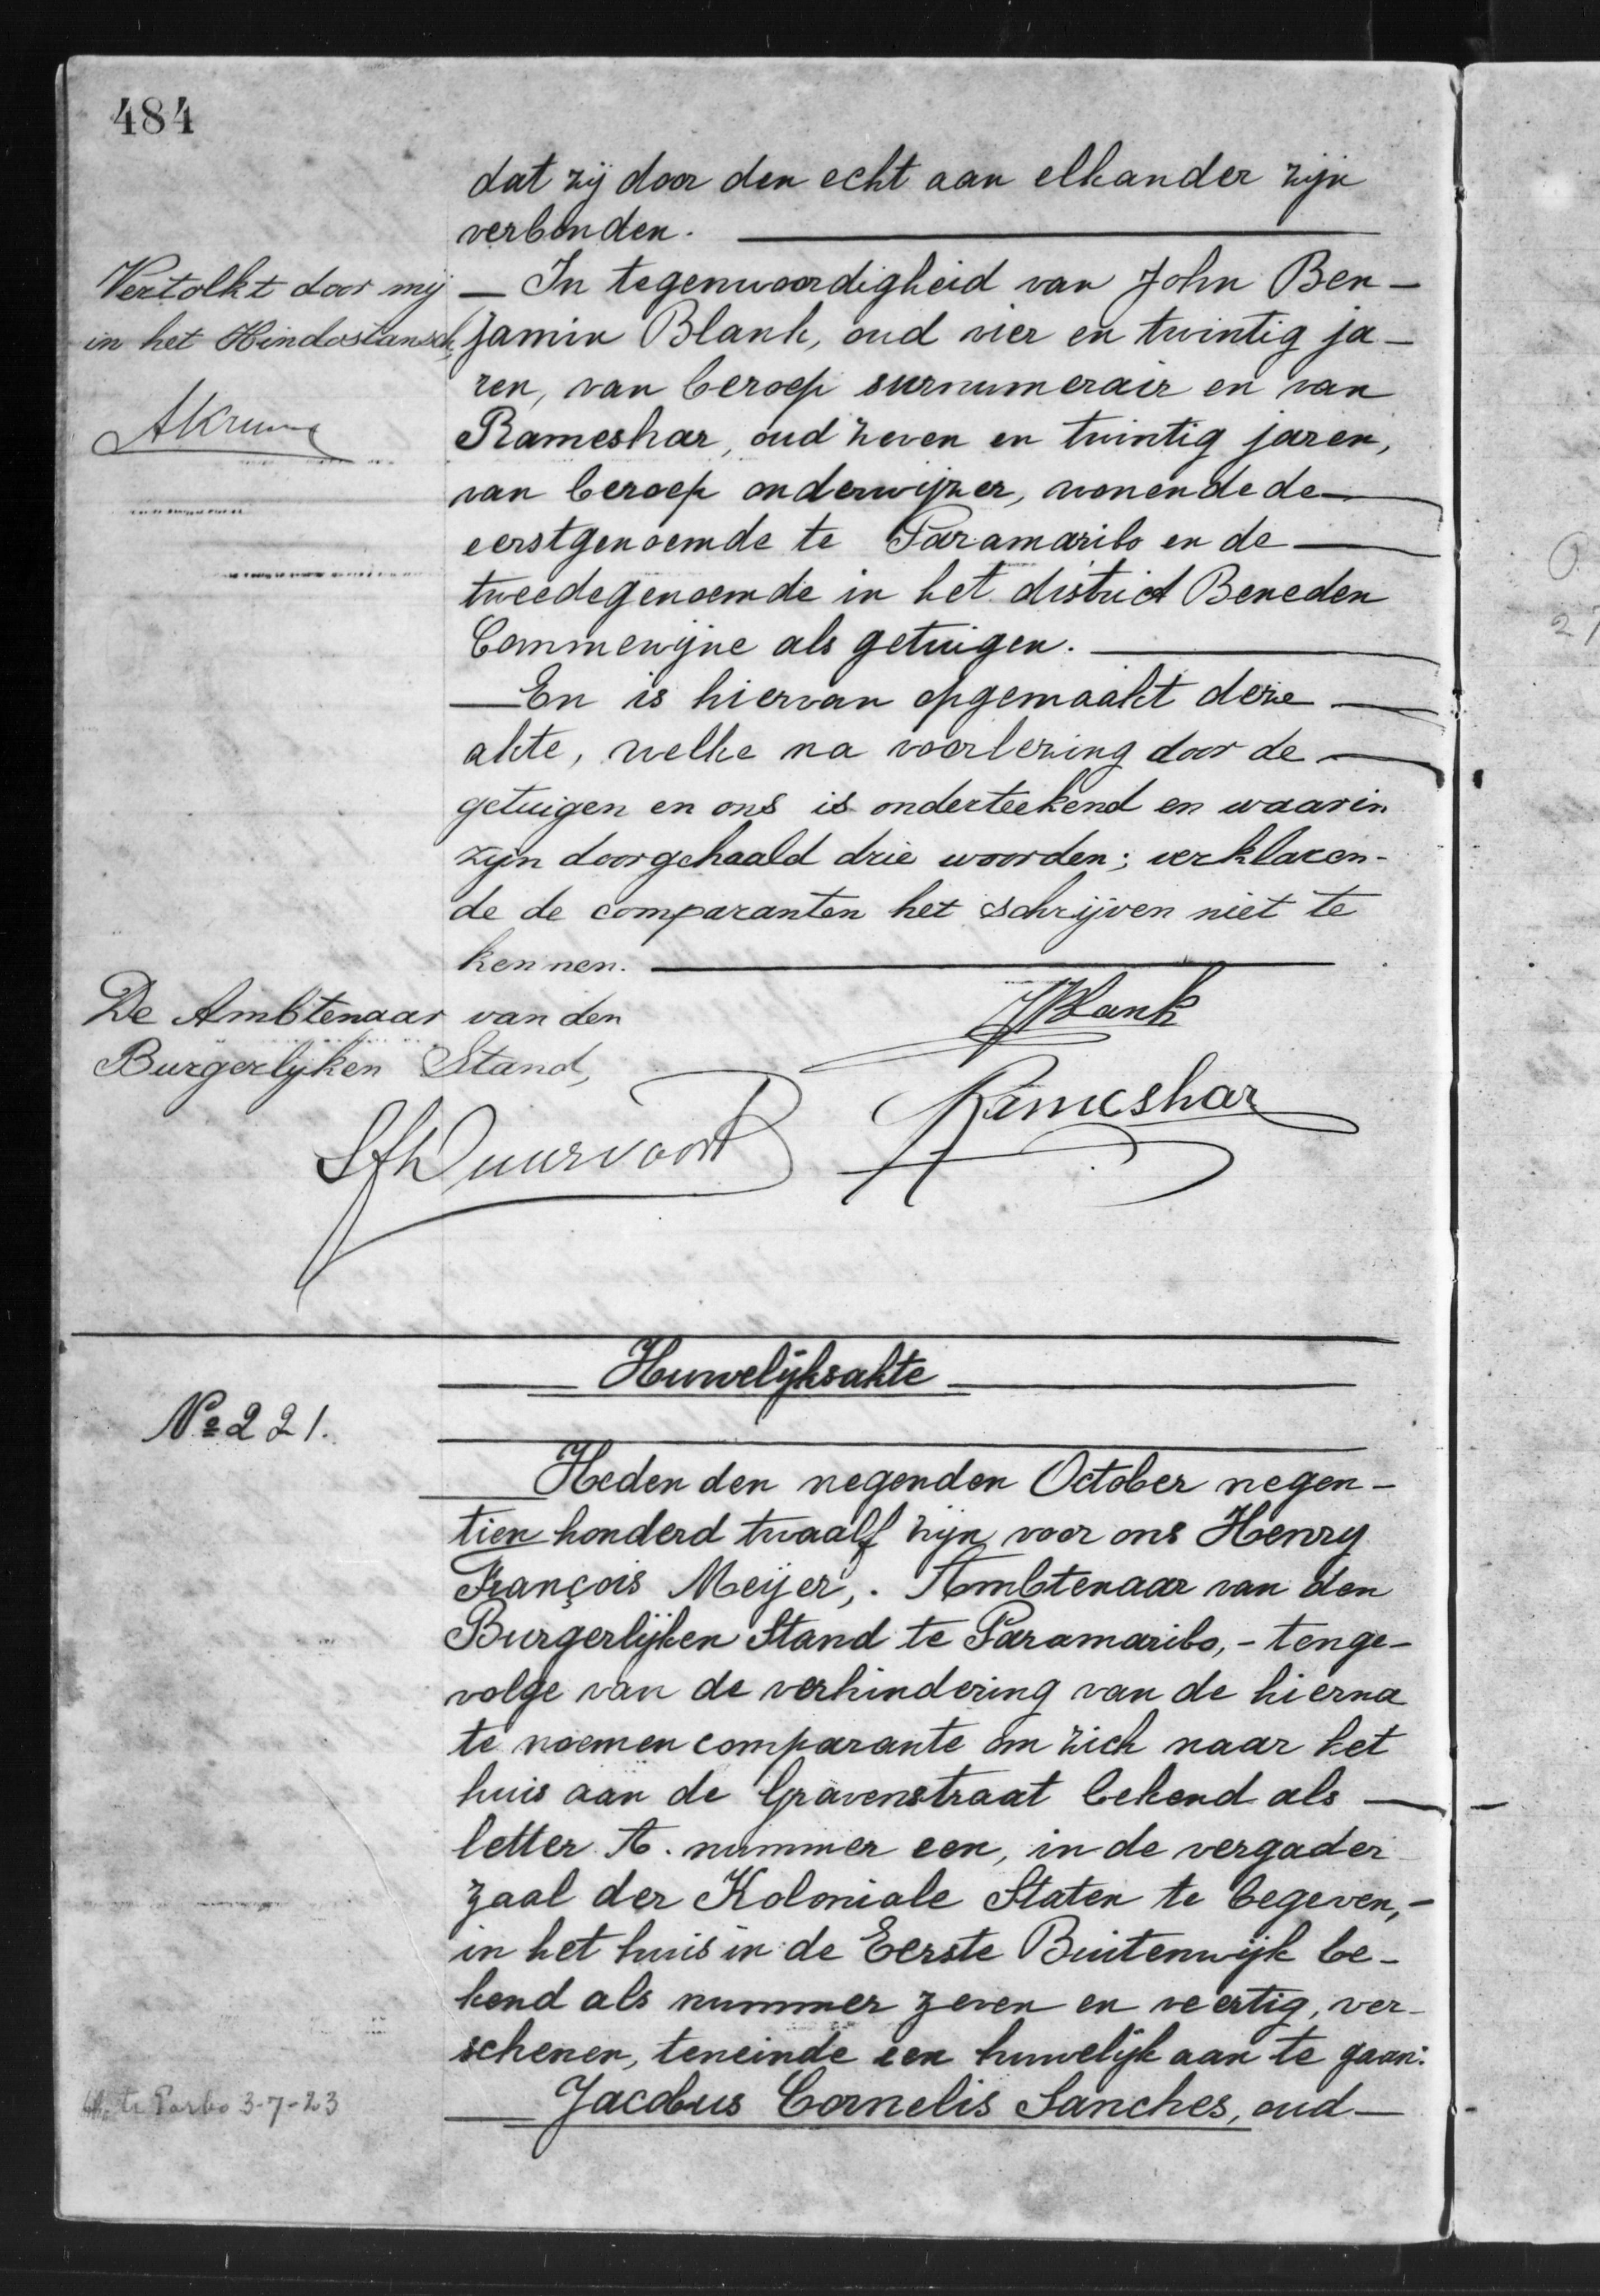 484
dat zij door den echt aan elkander zijn
verbonden.
Vertolkt door mij
in het Hindostansch,
— In tegenwoordigheid van John Ben-
jamin Blank, oud vier en twintig ja-
ren, van beroep surnumerair en van
Rameshar, oud zeven en twintig jaren,
van beroep onderwijzer, wonende de
eerstgenoemde te Paramaribo en de
tweedegenoemde in het district Beneden
Commewijne als getuigen.
— En is hiervan opgemaakt deze
akte, welke na voorlezing door de
getuigen en ons is onderteekend en waarin
zijn doorgehaald drie woorden; verklaren-
de de comparanten het schrijven niet te
kennen.
De Ambtenaar van den
Burgerlijken Stand,
JBlank
Rameshar
Duurvoort
Huwelijksakte
No 221.
Heden den negenden October negen-
tien honderd twaalf zijn voor ons Henry
François Meijer, Ambtenaar van den
Burgerlijken Stand te Paramaribo, - tenge-
volge van de verhindering van de hierna
te noemen comparante om zich naar het
huis aan de Gravenstraat bekend als
letter A. nummer een, in de vergader
zaal der Koloniale Staten te begeven, -
in het huis in de Eerste Buitenwijk be-
kend als nummer zeven en veertig, ver-
schenen, teneinde een huwelijk aan te gaan:
— Jacobus Cornelis Sanches, oud —
te Parbo 3-7-23